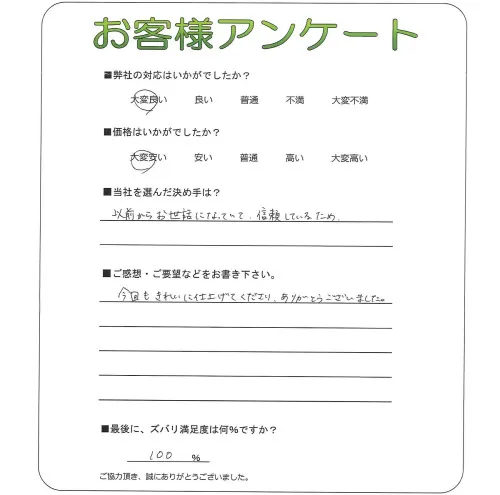 お客様アンケート
■弊社の対応はいかがでしたか？
大変良い 良い 普通 不満 大変不満
■価格はいかがでしたか？
大変安い 安い 普通 高い 大変高い
■当社を選んだ決め手は？
以前からお世話になっていて、信頼しているため。
■ご感想・ご要望などをお書き下さい。
今回もきれいに仕上げてくださり、ありがとうございました。
■最後に、ズバリ満足度は何％ですか？
100 ％
ご協力頂き、誠にありがとうございました。